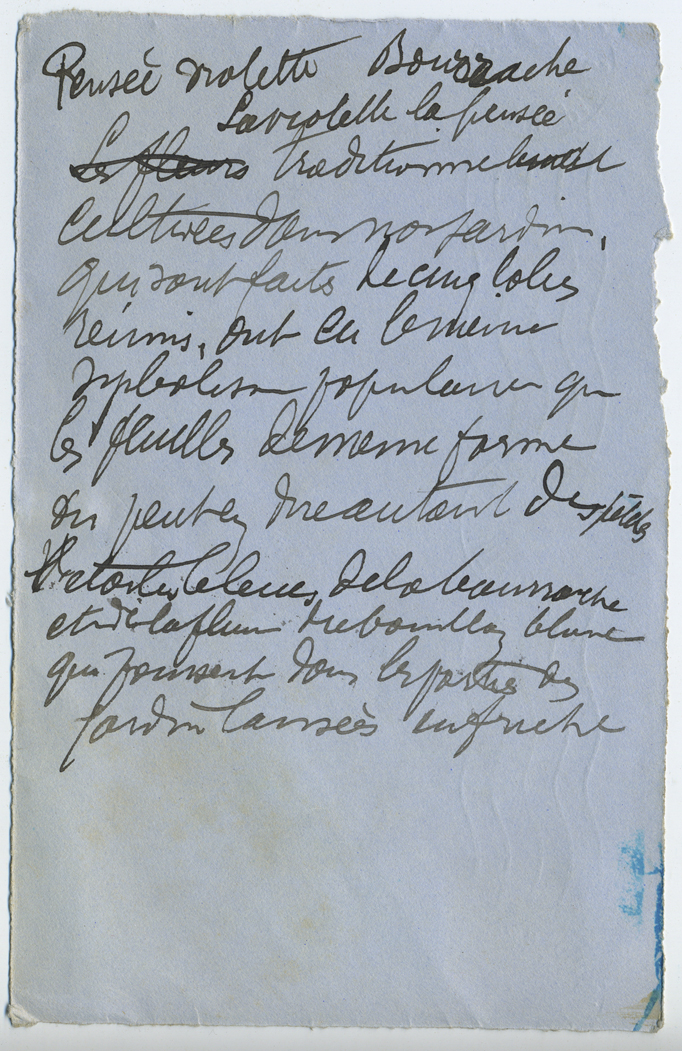 Pensée violette Bourrache
La violette la pensée
Les fleurs traditionnellement
cultivées dans nos jardins,
qui sont faites de cinq lobes
réunis, ont eu le même
symbolisme populaire que
les feuilles de meme forme
on peut en dire autant des pétales
étoiles bleues de la bourrache
et de la fleur du bouillon blanc
qui poussent dans les parties des
jardins laissées en friche